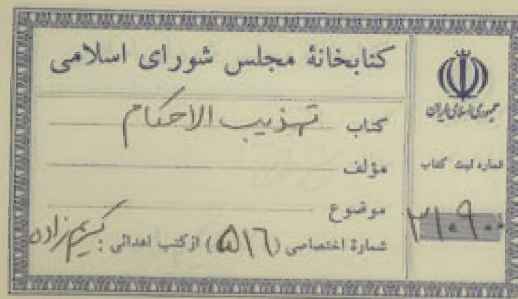 کتابخانهٔ مجلس شورای اسلامی
کتاب تهذیب الاحکام
مؤلف
موضوع
شمارهٔ اختصاصی (۵۱۶) از کتب اهدائی : کریم‌زاده
جمهوری اسلامی ایران
شماره ثبت کتاب
۲۱۰۹۰۰